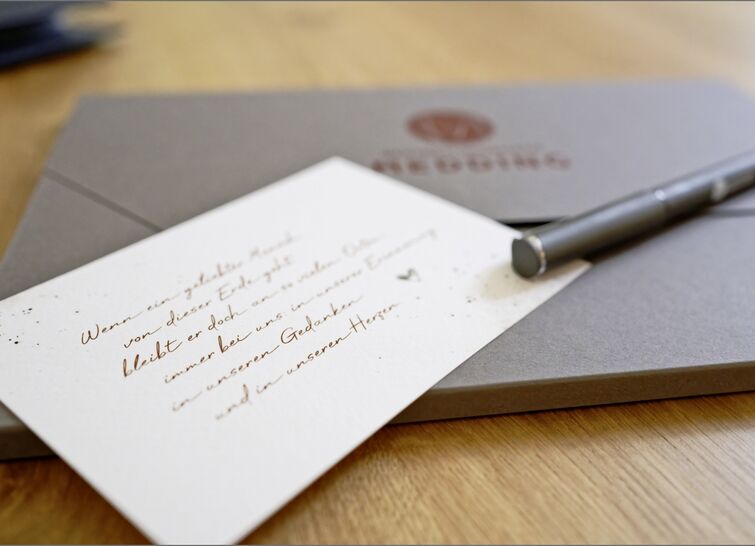 REDDING
Wenn ein geliebter Mensch
von dieser Erde geht
bleibt er doch an so vielen Orten
immer bei uns in unserer Erinnerung
in unseren Gedanken
und in unseren Herzen